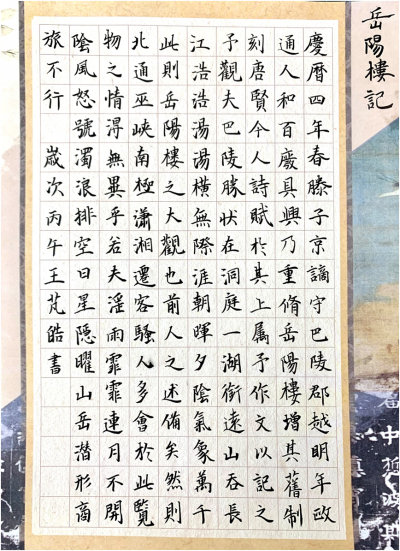 岳陽樓記
慶曆四年春滕子京謫守巴陵郡越明年政
通人和百廢具興乃重脩岳陽樓增其舊制
刻唐賢今人詩賦於其上屬予作文以記之
予觀夫巴陵勝狀在洞庭一湖銜遠山吞長
江浩浩湯湯橫無際涯朝暉夕陰氣象萬千
此則岳陽樓之大觀也前人之述備矣然則
北通巫峽南極瀟湘遷客騷人多會於此覽
物之情得無異乎若夫淫雨霏霏連月不開
陰風怒號濁浪排空日星隱曜山岳潛形商
旅不行 歲次丙午王芃皓書